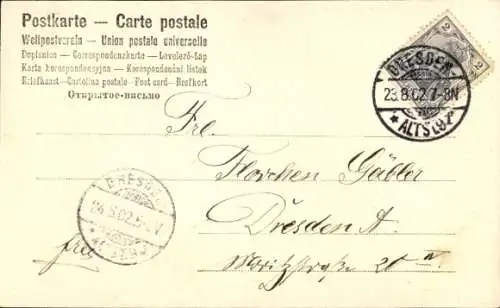 Postkarte — Carte postale
Weltpostverein — Union postale universelle
Dopisnice — Correspondenzkarte — Levelező-Lap
Karta korespondencyjna — Korespondenční lístek
Briefkaart — Cartolina postale — Post card — Brefkort
Открытое-письмо
2
2
DRESDEN
23.8.02.7-8N
* ALTST.
Frl.
Florchen Gäbler
Dresden A.
Moritzstraße 20 II.
frei
DRESDEN
24.8.02